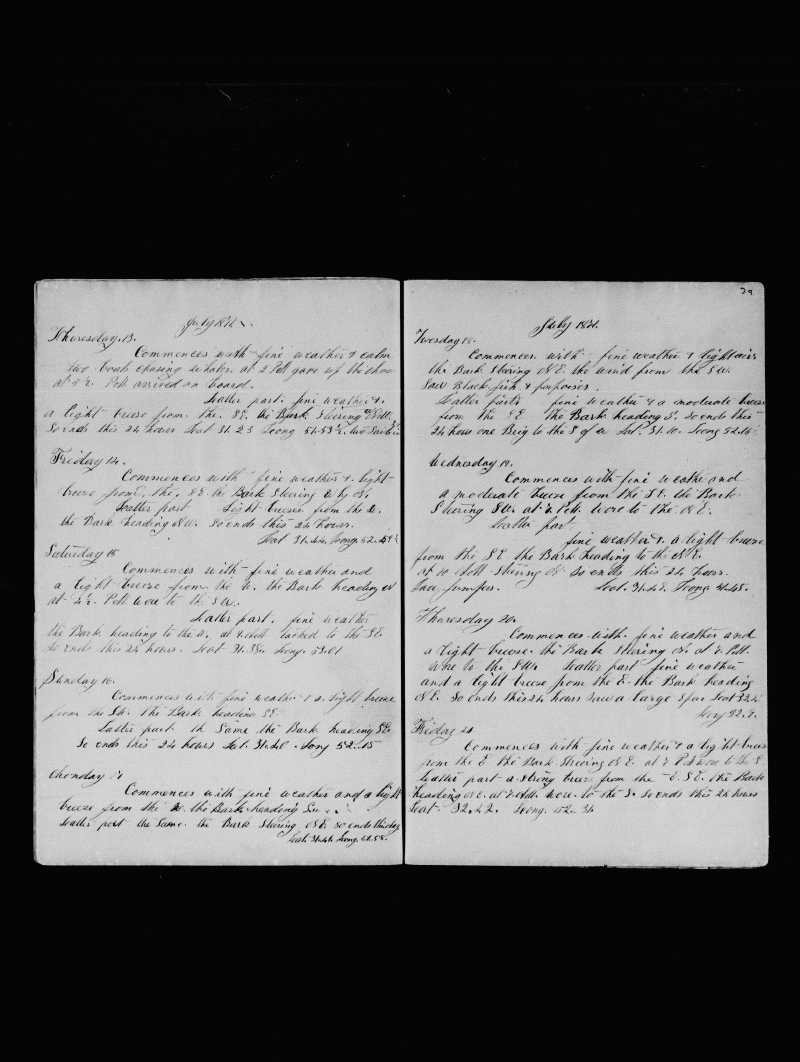 July 1871.
Thursday. 13.
Commences with fine weather & calm
two boats chasing whales. at 2 P.M. gave up the chase
at 5½ P.M. arrived on board.
Latter part. fine weather &.
a light breeze from the. SE. the Bark Steering
So ends this 24 hours Lat 31.23 Long 51.53½.
Friday 14.
Commences with fine weather &. light
breeze from. the. SE. the Bark Steering W by
Latter part Light breezes from the W.
the Bark heading NW. So ends this 24 hours.
Lat 31.44 Long. 52.
Saturday 15
Commences with fine weather and
a light breeze from the W. the Bark heading
at 4½. P.M. wore to the SW.
Latter part. fine weather
the Bark. heading to the W. at tacked to the SE.
So ends this 24 hours. Lat 31.33. Long. 53.01
Sunday 16.
Commences with fine weather & a. light breeze
from the SW. the Bark heading SE.
Latter part the Same the Bark heading SE.
So ends this 24 hours Lat. 31.40. Long 52.15
Monday 17
Commences with fine weather and a light
breeze from the W. the Bark heading
Latter part the Same. the Bark Steering NE. so ends this day
Lat. 31.44. Long.
79
July 1871.
Tuesday 18.
Commences with fine weather & light airs
the Bark Steering NE. the wind from the SW.
Saw Black fish. & porpoises.
Latter parts fine weather & a moderate breeze
from the SE the Bark heading S. So ends this
24 hours one Brig to the S of W Lat. 31.10. Long 52.15
Wednesday 19.
Commences with fine weather and
a moderate breeze from the SE. the Bark
Steering SW. at P.M. wore to the NE.
Latter part
fine weather &. a light breeze
from the SE the Bark heading to the NE.
at 10 A.M. Steering N So ends this 24 hours.
Saw Lat. 31.48. Long.
Thursday 20.
Commences with. fine weather and
a light breeze. the Bark Steering at 7. P.M.
wore to the SW. Latter part fine weather
and a light breeze from the E. the Bark heading
NE. So ends this 24 hours Saw a large Spar Lat 32.2
Long 52.9.
Friday 21
Commences with fine weather & a light breeze
from the E the Bark Steering NE. at 7 P.M. wore to the S
Latter part a strong breeze from the E. SE. the Bark
heading NE. at 7 A.M. wore. to the S. So ends this 24 hours
Lat. 32.42. Long. 52. 31